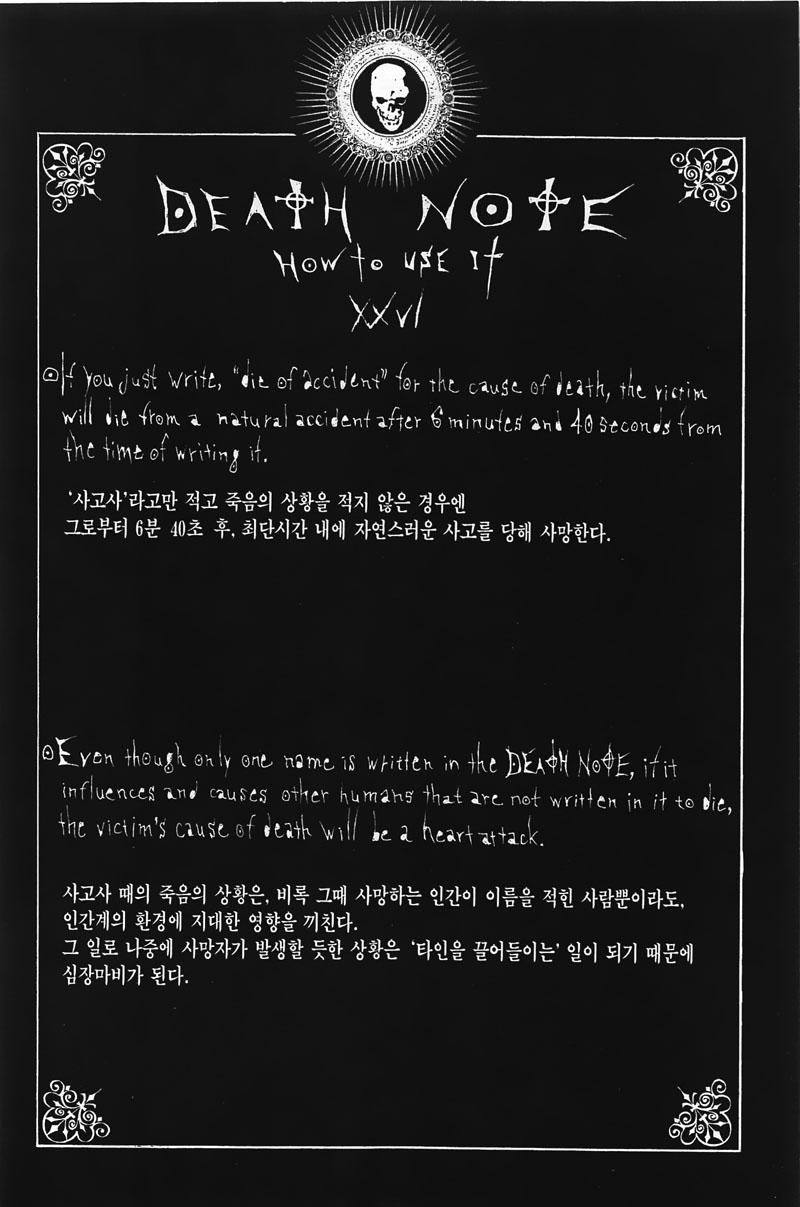 DEATH NOTE
HOW to USE It
XXVI
If you just write, "die of accident" for the cause of death, the victim
will die from a natural accident after 6 minutes and 40 seconds from
the time of writing it.
'사고사'라고만 적고 죽음의 상황을 적지 않은 경우엔
그로부터 6분 40초 후, 최단시간 내에 자연스러운 사고를 당해 사망한다.
Even though only one name is written in the DEATH NOTE, if it
influences and causes other humans that are not written in it to die,
the victim's cause of death will be a heart attack.
사고사 때의 죽음의 상황은, 비록 그때 사망하는 인간이 이름을 적힌 사람뿐이라도,
인간계의 환경에 지대한 영향을 끼친다.
그 일로 나중에 사망자가 발생할 듯한 상황은 '타인을 끌어들이는' 일이 되기 때문에
심장마비가 된다.